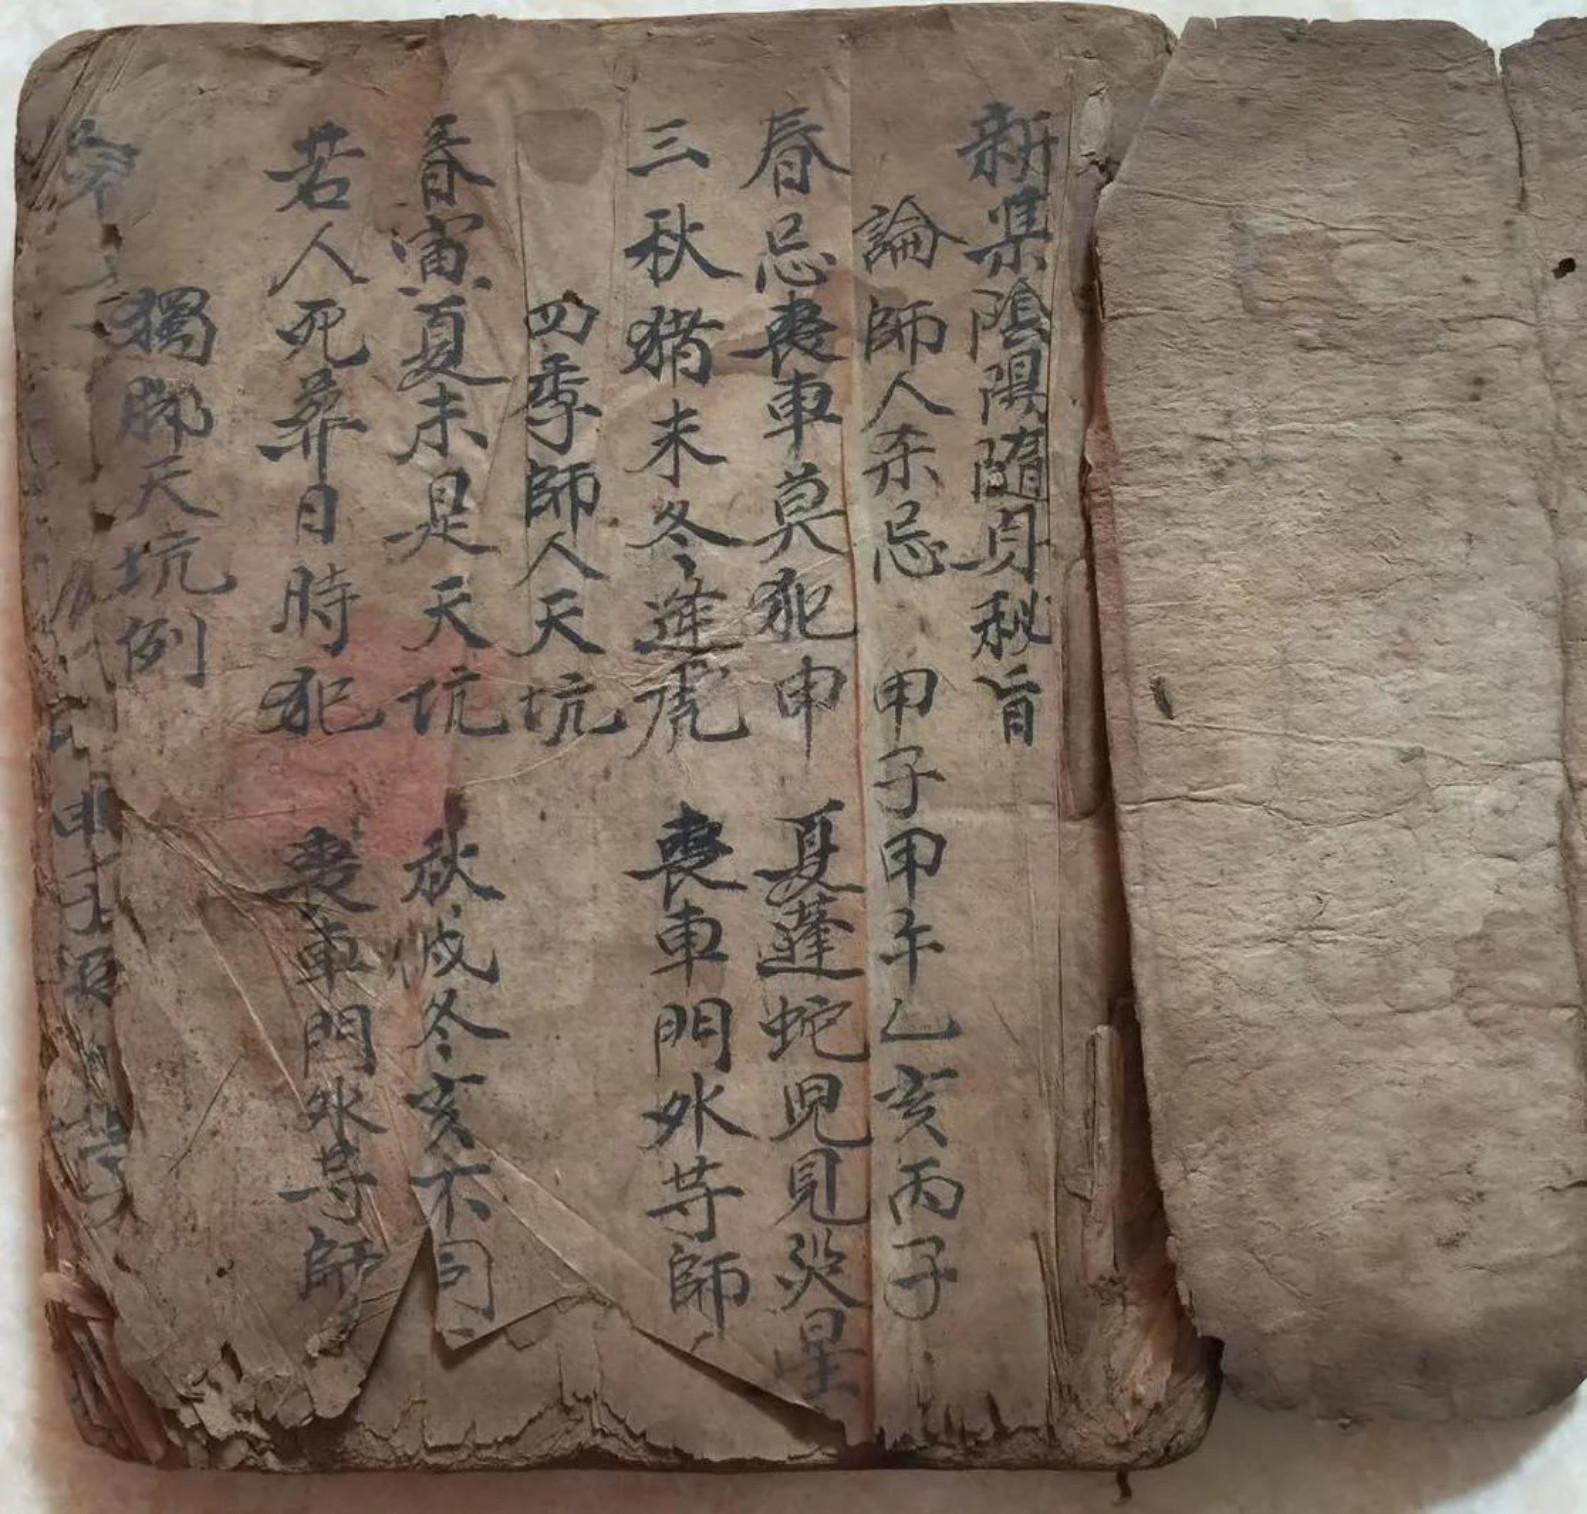 新集陰陽隨身秘旨
論師人杀忌 甲子甲午乙亥丙子
春忌喪車莫犯申 夏蓬蛇兒見災星
三秋猪未冬逢虎 喪車門外等師
四季師人天坑
春寅夏未是天坑 秋戌冬亥不同
若人死葬日時犯 喪車門外等師
獨脚天坑例